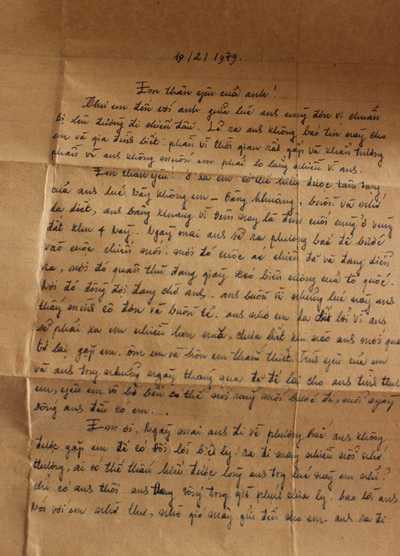 19/2/1979.
Em thân yêu của anh!
Thư em đến với anh giữa lúc anh đang đón vì chuẩn
bị lên đường đi chiến đấu. Lẽ ra anh không báo tin này cho
em và gia đình biết. phần vì thời gian rất gấp và khẩn trương
phần vì anh không muốn em phải lo lắng nhiều vì anh.
Em thân yêu! ở xa em có thể hiểu được tâm trạng
của anh lúc này không em - bâng khuâng, buồn và nhớ
da diết, anh bâng khuâng vì đêm nay là đêm cuối cùng ở vùng
đất khu 4 này. Ngày mai anh sẽ ra phương bắc để bước
vào cuộc chiến mới. nơi đó cuộc ác chiến đã và đang diễn
ra, nơi đó quân thù đang giày xéo biên cương của tổ quốc.
Nơi đó đồng đội đang chờ anh. anh buồn vì những lúc này anh
thấy mình cô đơn và buồn tẻ. anh nhớ em da diết bởi vì anh
sẽ phải xa em nhiều hơn nữa, chưa biết khi nào anh mới quay
trở lại gặp em. ôm em và hôn em tha thiết. Tình yêu của em
và anh trong những ngày tháng qua đã để lại cho anh tình thương
em, yêu em vô bờ bến có thể nói rằng mỗi bước đi, mỗi ngày
sống anh đều có em...
Em ơi, Ngày mai anh đi về phương bắc anh không
được gặp em để có đôi lời biệt ly. ra đi mang nhiều nỗi nhớ
thương, ai có thể thấu hiểu được lòng anh trong lúc này em nhỉ?
chỉ có anh thôi anh đang sống trong giờ phút chia ly. bao lời anh
nói với em nhờ thư, nhờ gió mây gửi đến cho em. anh ra đi